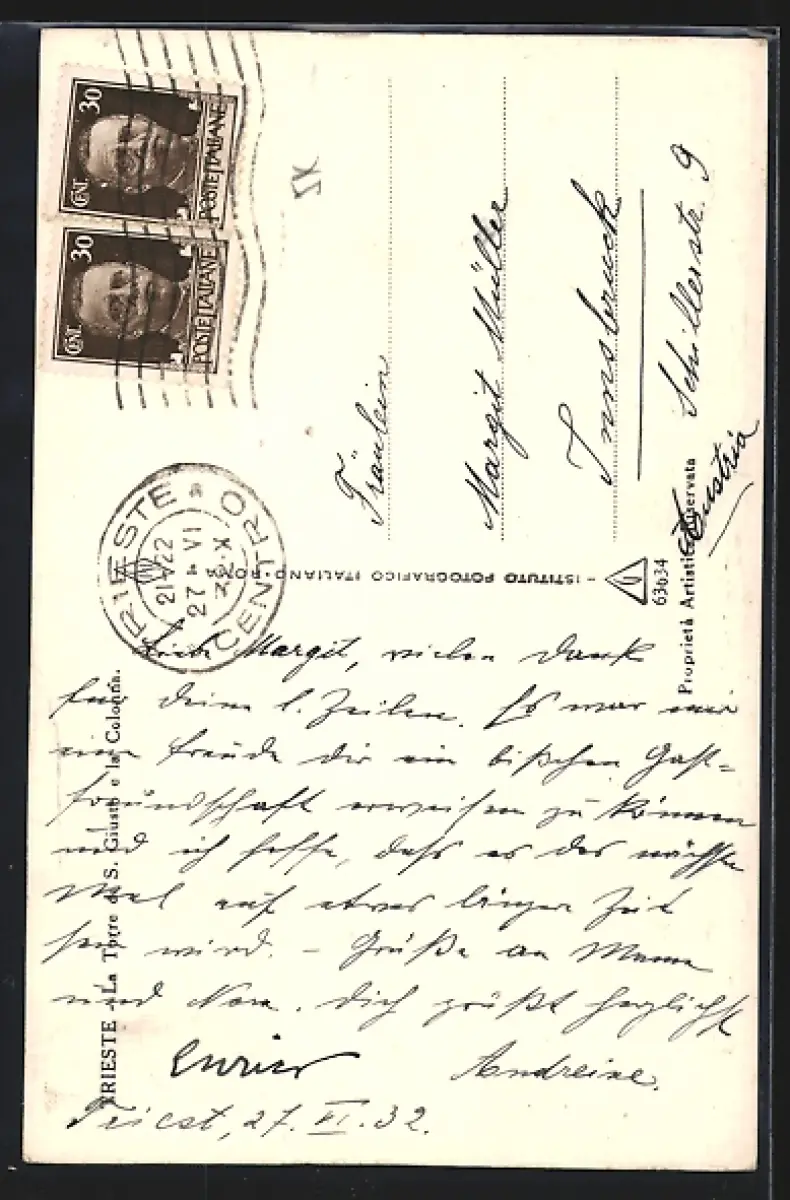 CENT. 30
POSTE ITALIANE
CENT. 30
POSTE ITALIANE
TRIESTE
CENTRO
21-22
27 VI
32 X
Fräulein
Margit Müller
Innsbruck
Schillerstr. 9
Austria
- ISTITUTO FOTOGRAFICO ITALIANO - ROMA
63634
Proprietà Artistica Riservata
TRIESTE - La Torre di S. Giusto e la Colonna.
Liebe Margit, vielen Dank
für deine l. Zeilen. Es war mir
eine Freude dir ein bißchen Gast=
freundschaft erweisen zu können
und ich hoffe, daß es das nächste
Mal auf etwas längere Zeit
sein wird. - Grüße an Mama
und Nora. Dich grüßt herzlichst
Enrico Andreine.
Triest, 27. VI. 32.